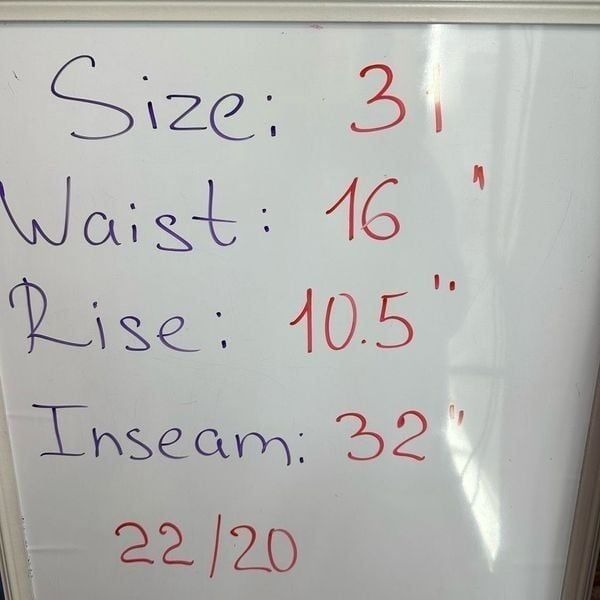 Size: 31
Waist: 16"
Rise: 10.5"
Inseam: 32"
22/20